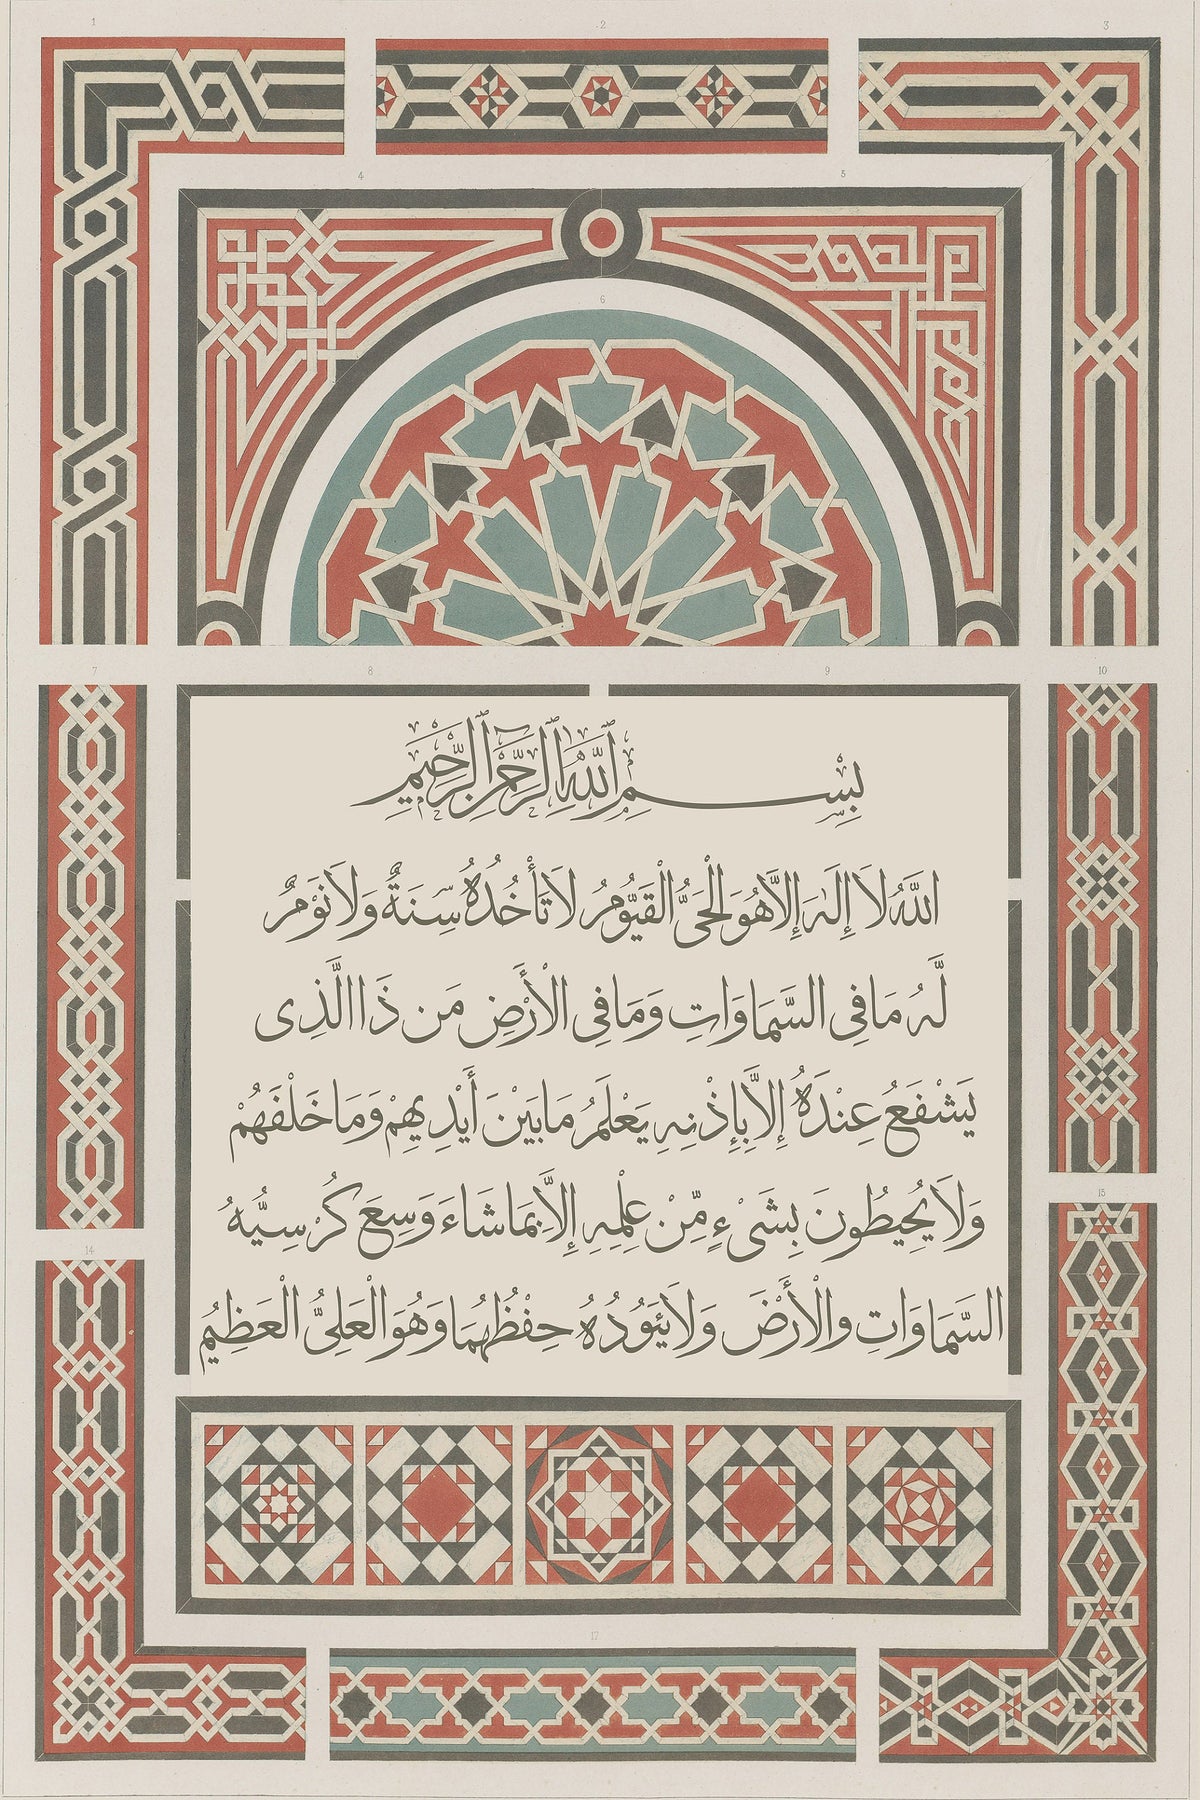 1
2
3
4
5
6
7
8
9
10
بِسْمِ ٱللَّهِ ٱلرَّحْمَٰنِ ٱلرَّحِيمِ
اللَّهُ لَا إِلَٰهَ إِلَّا هُوَ الْحَيُّ الْقَيُّومُ لَا تَأْخُذُهُ سِنَةٌ وَلَا نَوْمٌ
لَّهُ مَا فِي السَّمَاوَاتِ وَمَا فِي الْأَرْضِ مَن ذَا الَّذِى
يَشْفَعُ عِنْدَهُ إِلَّا بِإِذْنِهِ يَعْلَمُ مَا بَيْنَ أَيْدِيهِمْ وَمَا خَلْفَهُمْ
وَلَا يُحِيطُونَ بِشَىْءٍ مِّنْ عِلْمِهِ إِلَّا بِمَا شَاءَ وَسِعَ كُرْسِيُّهُ
السَّمَاوَاتِ والْأَرْضَ وَلَا يَئُودُهُ حِفْظُهُمَا وَهُوَ الْعَلِىُّ الْعَظِيمُ
14
17